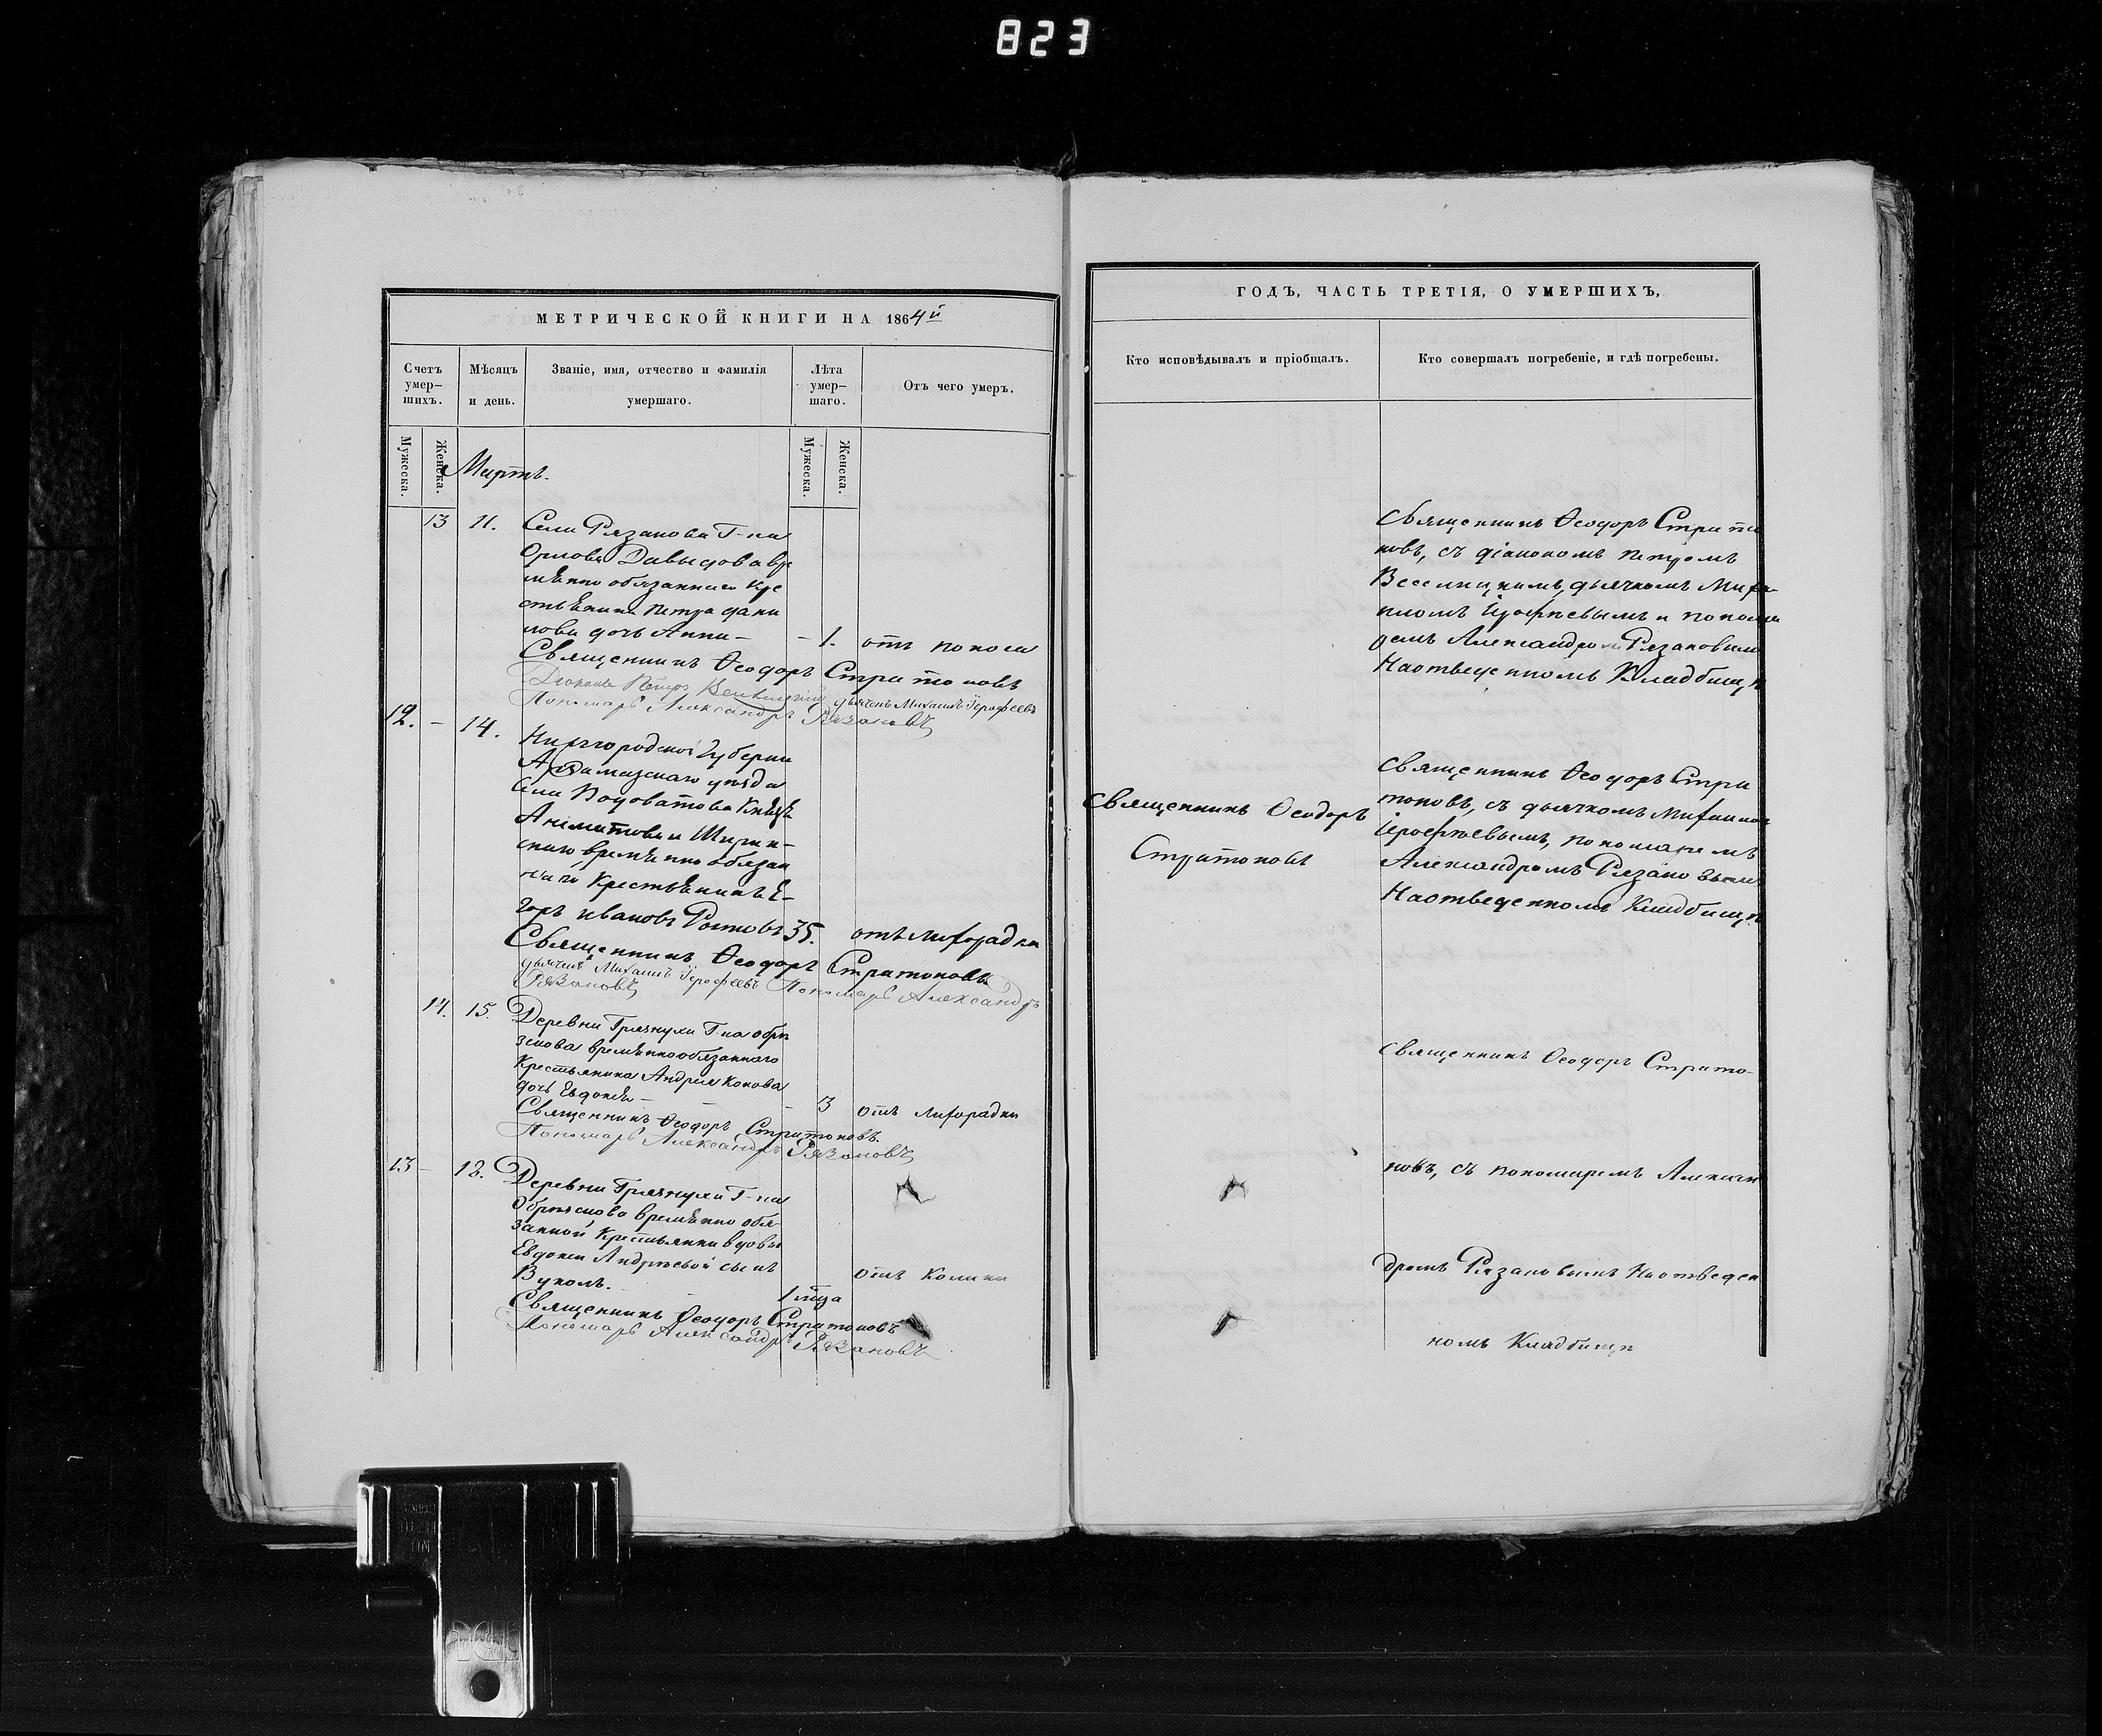 823
МЕТРИЧЕСКОЙ КНИГИ НА 1864й
Счетъ умер-шихъ.
Мѣсяцъ и день.
Званіе, имя, отчество и фамилія умершаго.
Лѣта умер-шаго.
Отъ чего умеръ.
Мужеска.
Женска.
Мужеска.
Женска.
Мартъ.
13 11. Села Рязанова Г-на
Орлова Давыдова вре
мѣнно обязаннаго кре
стьянина Петра Дани
лова дочь Анна — — 1. отъ поноса
Священникъ Ѳеодоръ Стратоновъ
Діаконъ Петръ дьячекъ Михаилъ Іерофеевъ
Пономарь Александръ Рязановъ
12. — 14. Нижгородской Губерни
Арзамаскаго уѣзда
Села Водоватова Князя
и Ширин-
скаго времѣнно обязан
наго Крестьянинъ Е-
горъ Ивановъ 35. отъ лихорадки
Священникъ Ѳеодоръ Стратоновъ
дьячекъ Михаилъ Іерофеевъ Пономарь Александръ
Рязановъ
14. 15. Деревни Грязнухи Г-на Обрѣ
зкова времѣннообязаннаго
Крестьянина Андрея Конова
дочь Евдокѣя — — — 3 отъ лихорадки
Священникъ Ѳеодоръ Стратоновъ.
Пономарь Александръ Рязановъ
13 — 18. Деревни Грязнухи Г-на
Обрѣзкова времѣнно обя-
занной крестьянки вдовы
Евдокеи Андрѣевой сынъ
Вуколъ. 1 мца отъ колики
Священникъ Ѳеодоръ Стратоновъ
Пономарь Александръ Рязановъ
ГОДЪ, ЧАСТЬ ТРЕТІЯ, О УМЕРШИХЪ,
Кто исповѣдывалъ и пріобщалъ.
Кто совершалъ погребеніе, и гдѣ погребены.
Священникъ Ѳеодоръ Страто
новъ, съ діакономъ Петромъ
дьячкомъ Миха-
иломъ Іерофѣевымъ и понома
Александромъ Рязановымъ
На отведенномъ Кладбищѣ
Священникъ Ѳеодоръ
Стратоновъ
Священникъ Ѳеодоръ Стра
тоновъ, съ дьячкомъ Михаиломъ
Іерофѣевымъ, пономаремъ
Александромъ Рязановымъ
На отведенномъ Кладбищѣ
Священникъ Ѳеодоръ Страто-
новъ, съ пономаремъ Алексан
дромъ Рязановымъ На отведен
номъ Кладбищѣ